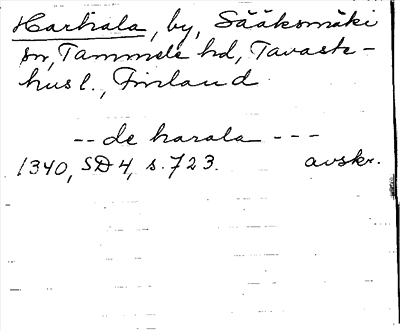 Harhala, by, Sääksmäki
sn, Tammela hd, Tavaste-
hus l., Finland
-- de harala ---
1340, SD 4, s. 723. avskr.